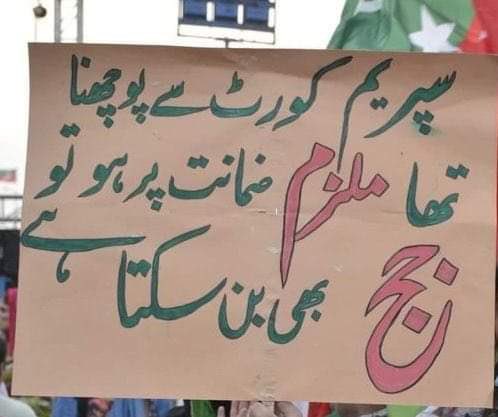 سپریم کورٹ سے پوچھنا
تھا ملزم ضمانت پر ہو تو
جج بھی بن سکتا ہے